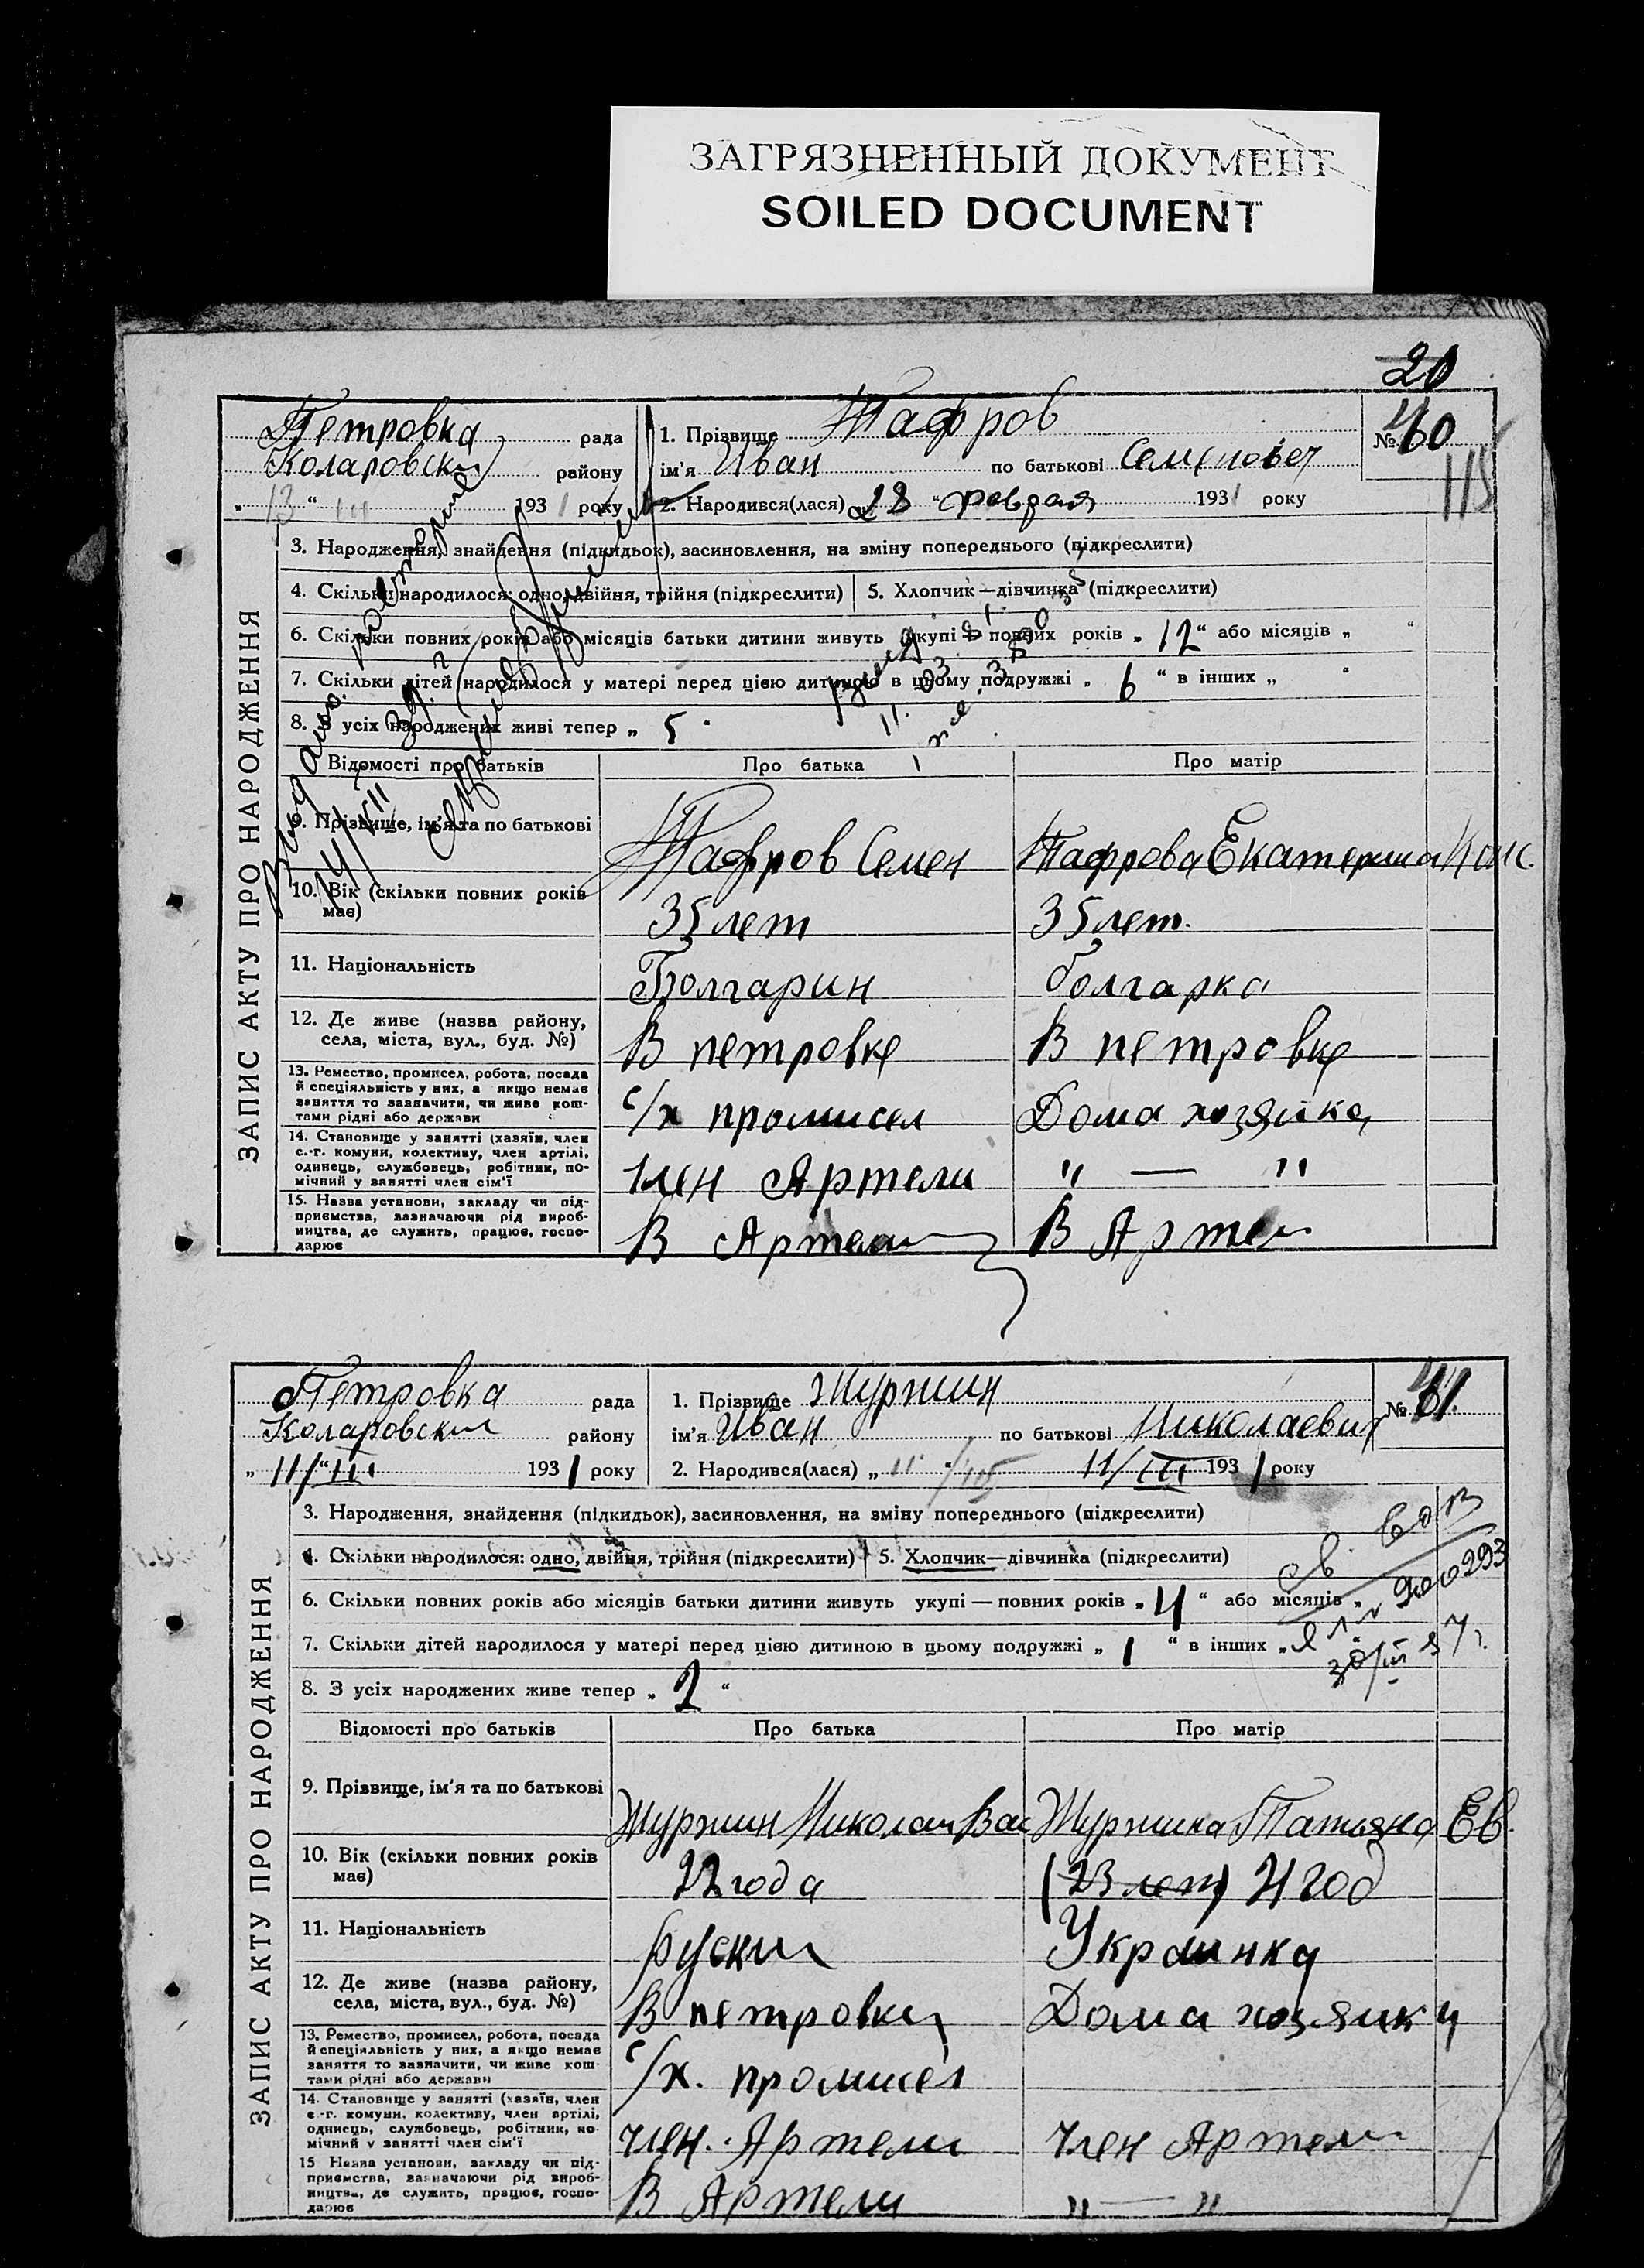 ЗАГРЯЗНЕННЫЙ ДОКУМЕНТ
SOILED DOCUMENT
20
Петровка рада
Коларовски району
„ 13 “ III 1931 року
1. Прізвище Тафров
ім'я Иван по батькові Семенович
2. Народився(лася) 28 “ февраля 1931 року
№ 60
115
ЗАПИС АКТУ ПРО НАРОДЖЕННЯ
3. Народження, знайдення (підкидьок), засиновлення, на зміну попереднього (підкреслити)
4. Скільки народилося: одно, двійня, трійня (підкреслити) 5. Хлопчик—дівчинка (підкреслити)
6. Скільки повних років або місяців батьки дитини живуть укупі — повних років „ 12 “ або місяців „ “
7. Скільки дітей народилося у матері перед цією дитиною в цьому подружжі „ 6 “ в інших „ “
8. З усіх народжених живі тепер „ 5 “
Відомості про батьків Про батька Про матір
9. Прізвище, ім'я та по батькові Тафров Семен Тафрова Екатерина
10. Вік (скільки повних років має) 35 лет 35 лет.
11. Національність Болгарин болгарка
12. Де живе (назва району, села, міста, вул., буд. №) В петровке В петровке
13. Ремество, промисел, робота, посада
й спеціяльність у них, а якщо немає
заняття то зазначити, чи живе кош-
тами рідні або держави
с/х промисел Дома хозяйка
14. Становище у занятті (хазяїн, член
с.-г. комуни, колективу, член артілі,
одинець, службовець, робітник, по-
мічний у занятті член сім'ї
член Артели " — "
15. Назва установи, закладу чи під-
приємства, зазначаючи рід вироб-
ництва, де служить, працює, госпо-
дарює
В Артели В Артели
Петровка рада
Коларовски району
„ 11/“ III 1931 року
1. Прізвище Журжин
ім'я Иван по батькові Николаевич
2. Народився(лася) „ 11 “ 11/III 1931 року
№ 61.
ЗАПИС АКТУ ПРО НАРОДЖЕННЯ
3. Народження, знайдення (підкидьок), засиновлення, на зміну попереднього (підкреслити)
4. Скільки народилося: одно, двійня, трійня (підкреслити) 5. Хлопчик—дівчинка (підкреслити)
6. Скільки повних років або місяців батьки дитини живуть укупі — повних років „ 4 “ або місяців „
7. Скільки дітей народилося у матері перед цією дитиною в цьому подружжі „ 1 “ в інших „
8. З усіх народжених живе тепер „ 2 “
Відомості про батьків Про батька Про матір
9. Прізвище, ім'я та по батькові Журжин Николай Вас Журжина Татьяна Ев.
10. Вік (скільки повних років має) 22 года (23 лет) 21 год
11. Національність руский Украинка
12. Де живе (назва району, села, міста, вул., буд. №) В петровки Дома хозяйка
13. Ремество, промисел, робота, посада
й спеціяльність у них, а якщо немає
заняття то зазначити, чи живе кош-
тами рідні або держави
с/х. промисел
14. Становище у занятті (хазяїн, член
с.-г. комуни, колективу, член артілі,
одинець, службовець, робітник, по-
мічний у занятті член сім'ї
член. Артели член Артели
15 Назва установи, закладу чи під-
приємства, зазначаючи рід вироб-
ництва, де служить, працює, госпо-
дарює
В Артели " — "